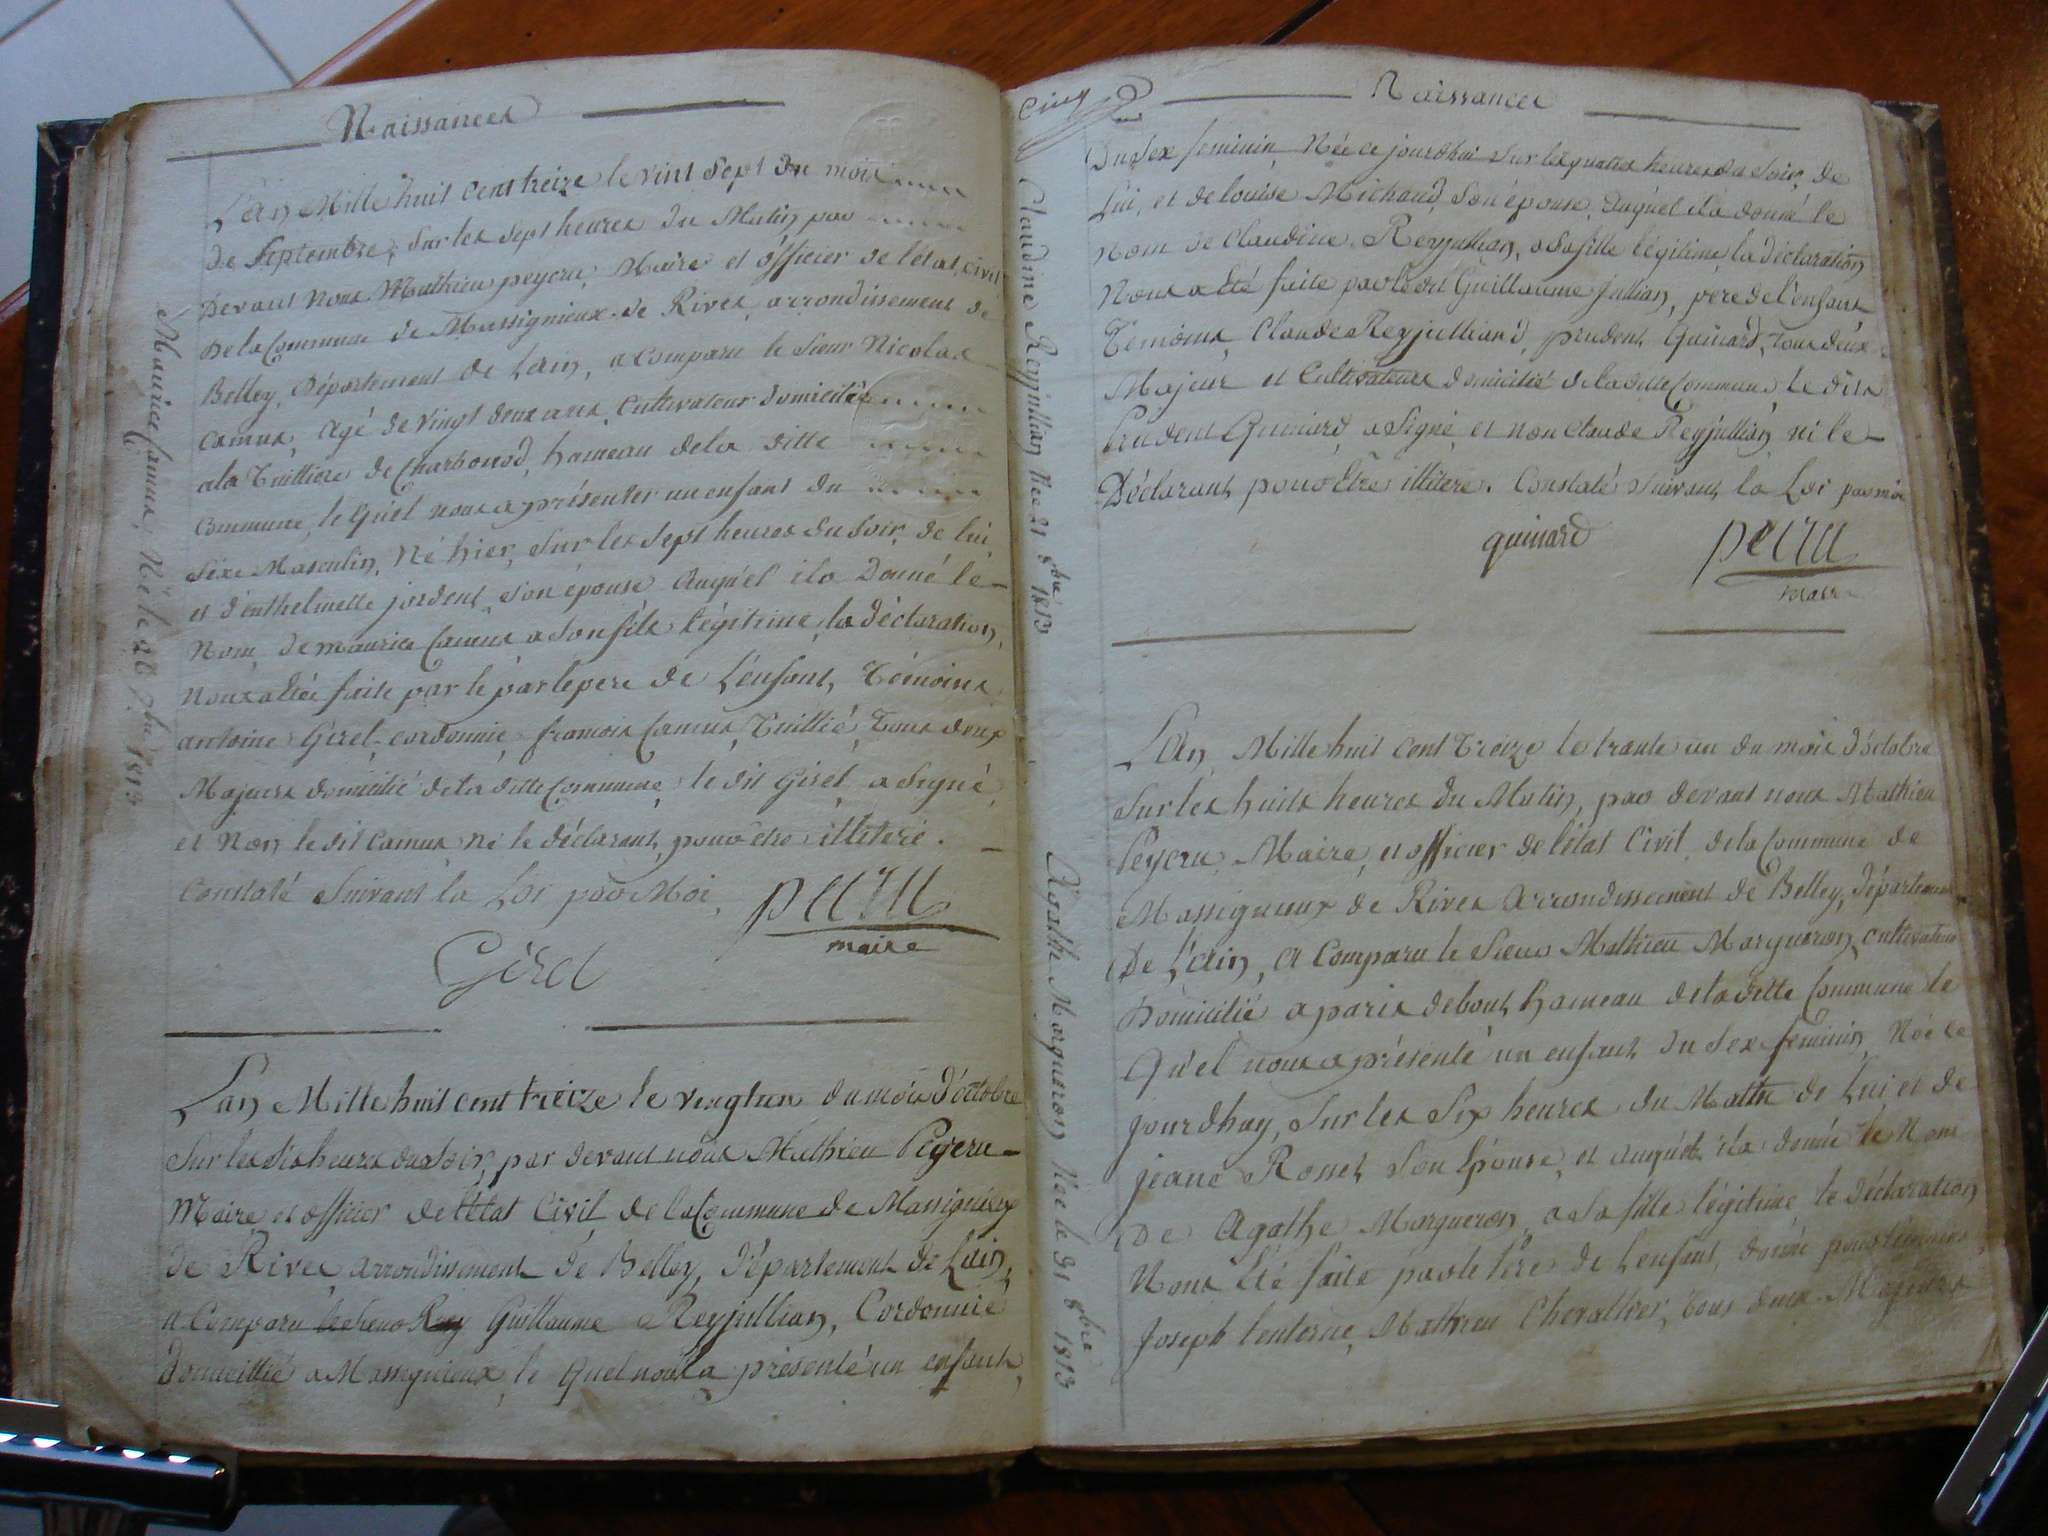 Naissances
Maurice Camus, Né le 26 7bre 1813
L'an Mille huit cent treize le vint sept du mois
De Septembre, sur les sept heures du Matin, par
Devant nous Mathieu peyeru, Maire et officier de l'état civil
De la Commune de Massignieux de Rives, arrondissement de
Belley, Département de Lain, a Comparu le Sieur Nicolas
Camus, Agé de vingt deux ans, Cultivateur domicilié
a la Tuilliere de Charbonod, hameau de la ditte
Commune, le Quel nous a présenter un enfant du
Séxe Masculin, Né hier, sur les sept heures du Soir, de lui
et d'enthelmette jordent, son épouse Auquél il a Donné le
Nom, De maurice Camus a son fils légitime, la déclaration,
Nous a étée faite par le par le pere de L'énfant, Témoins
antoine Girel, cordonnié, framois Camus, Tuillié, Tous deux
Majeurs domicilié de la ditte Commune, le dit Girel a Signé,
et Non le dit Camus Ni le déclarant, pour être illiteré.
Constaté Suivant la Loi par Moi,
peiru
maire
Girel
L'an Mille huit cent treize le vingt un du mois d'octobre
Sur les Six heures du Soir, par devant nous Mathieu Peyeru
Maire et officier de l'état Civil, de la Commune de Massignieux
de Rives arrondissement de Belley, Département de Lain,
a Comparu Guillaume Reyjullian, Cordonnié
Domicillié a Massignieux, le Quel nous a présenté un enfant,
Cinq
Naissances
Claudine Reyjullian Née 21 8bre 1813
Du Sex feminin, Née ce jourdhui Sur les quatres heures du Soir, de
Lui, et de louise Michaud, Son épouse, auquél il a donné le
Nom de Claudine Reyjullian, a Sa fille légitime, la déclaration
Nous a été faite par le dit Guillaume Jullian, pere de l'enfant
Témoins, Claude Reyjulliand, prudent Guinard, Tous deux
Majeur et Cultivateurs domicilié de la ditte Commune, le dit
Prudent Guinard a Signé, et non Claude Reyjullian, ni le
Déclarant pour être illitere. Constaté Suivant la Loi par moi
guinard
peiru
maire
Agathe Margueron Née le 31 8bre 1813
L'An Mille huit cent Treize le trante un du mois d'octobre
Sur les huits heures du Matin, par devant nous Mathieu
Peyeru, Maire, et officier de l'état Civil, de la Commune de
Massignieux de Rives Arrondissement de Belley, Département
De L'ain, A Comparu le Sieur Mathieu Margueron, cultivateur
Domicilié a paris debout, hameau de la ditte Commune le
Qu'el nous a présenté un enfant du Sex feminin, Née ce
jourdhuy, Sur les Six heures du Matin de Lui et de
jeane Rosset Son Epouse, et auquél il a donné le Nom
De Agathe Margueron, a Sa fille légitime le Déclaration
Nous été faite par le Pere de L'enfant, donné pour témoins,
Joseph Mathieu Chevallier, Tous deux Majeurs